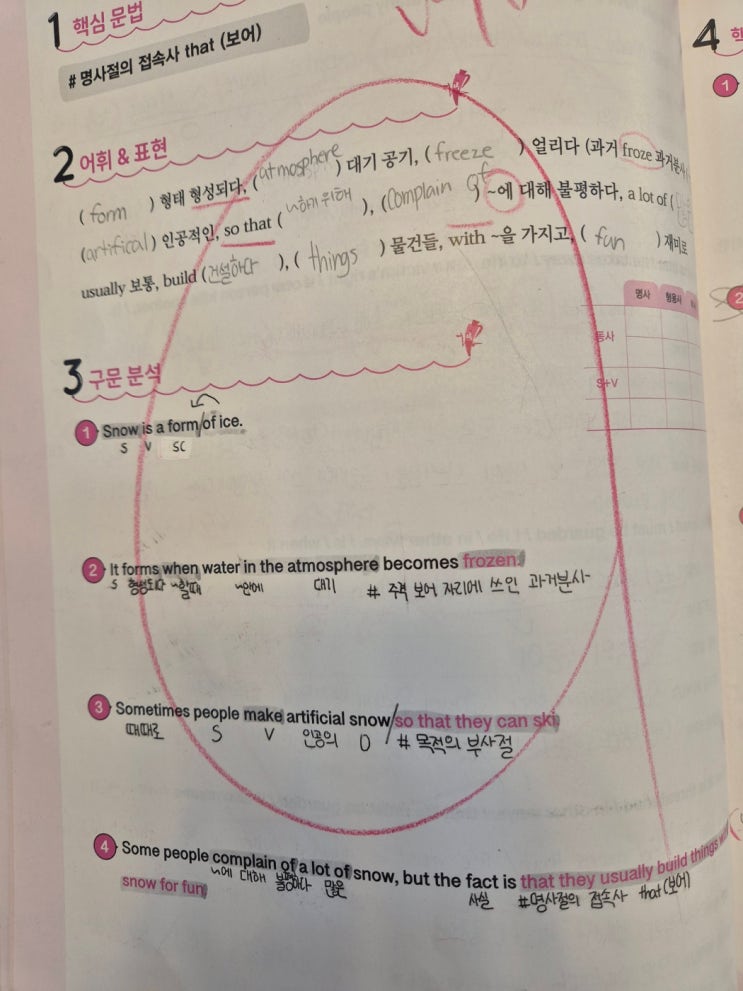 1 핵심 문법
# 명사절의 접속사 that (보어)
2 어휘 & 표현
( form ) 형태 형성되다, ( atmosphere ) 대기 공기, ( freeze ) 얼리다 (과거 froze 과거분사
( artifical ) 인공적인, so that ( ~하기 위해 ), ( Complain of ) ~에 대해 불평하다, a lot of (
usually 보통, build ( 건설하다 ), ( things ) 물건들, with ~을 가지고, ( fun ) 재미로
명사 형용사
동사
S+V
3 구문 분석
1 Snow is a form/of ice.
S V SC
2 It forms when water in the atmosphere becomes frozen.
S 형성되다 ~할때 ~안에 대기 # 주격 보어 자리에 쓰인 과거분사
3 Sometimes people make artificial snow/so that they can ski.
때때로 S V 인공의 O # 목적의 부사절
4 Some people complain of a lot of snow, but the fact is that they usually build things
~에 대해 불평하다 많은 사실 #명사절의 접속사 that (보어)
snow for fun
4
1
2